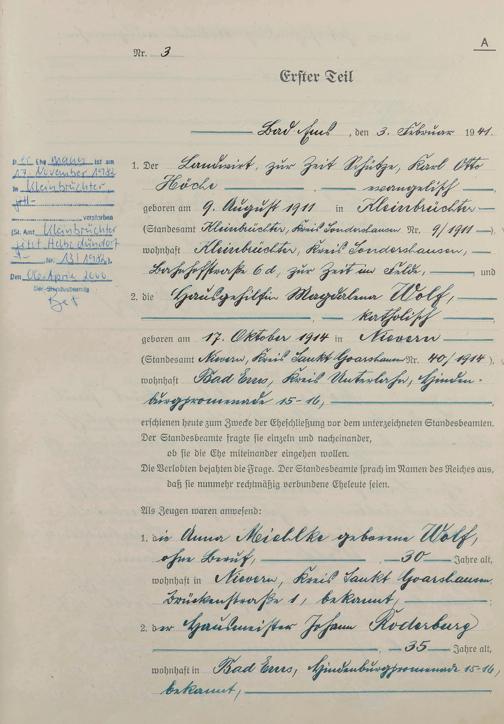 A
Nr. 3
Erster Teil
Bad Ems, den 3. Februar 1941.
1. Der Landwirt, zur Zeit Schütze, Karl Otto
Höche, evangelisch
geboren am 9. August 1911 in Kleinbrüchter
(Standesamt Kleinbrüchter, Kreis Sondershausen Nr. 9/1911)
wohnhaft Kleinbrüchter, Kreis Sondershausen,
Bahnhofstraße 6d, zur Zeit im Felde, und
2. die Hausgehilfin Magdalena Wolf,
katholisch
geboren am 17. Oktober 1914 in Nievern
(Standesamt Nievern, Kreis Sankt Goarshausen Nr. 40/1914).
wohnhaft Bad Ems, Kreis Unterlahn, Hinden-
burgpromenade 15-16,
erschienen heute zum Zwecke der Eheschließung vor dem unterzeichneten Standesbeamten.
Der Standesbeamte fragte sie einzeln und nacheinander,
ob sie die Ehe miteinander eingehen wollen.
Die Verlobten bejahten die Frage. Der Standesbeamte sprach im Namen des Reiches aus,
daß sie nunmehr rechtmäßig verbundene Eheleute seien.
Als Zeugen waren anwesend:
1. die Anna Miehlke geborene Wolf,
ohne Beruf, 30 Jahre alt,
wohnhaft in Nievern, Kreis Sankt Goarshausen,
Brückenstraße 1, bekannt,
2. der Hausmeister Johann Roderburg
35 Jahre alt,
wohnhaft in Bad Ems, Hindenburgpromenade 15-16,
bekannt,
Der Ehemann ist am
17. November 1982
in Kleinbrüchter
verstorben
(St. Amt Kleinbrüchter
jetzt Helbedündorf
Nr. 13/1982).
Den 06. April 2000
Der Standesbeamte